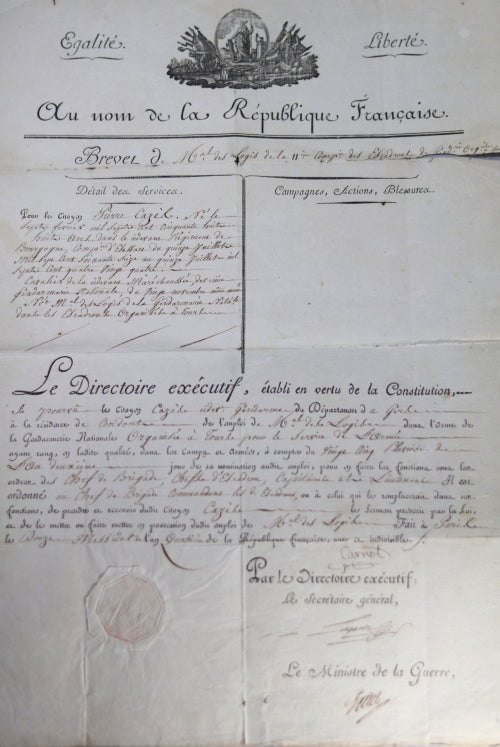 Egalité. Liberté.
Au nom de la République Française.
Brevet de M.al des Logis de la 11.e Comp.ie des Escadrons de Gend.ie
Détail des Services.
Campagnes, Actions, Blessures.
Pour le Citoyen Pierre Cazel. Né le
Sept fevrier mil Sept Cent Cinquante huit
huit Ans dans le cidevant Régiment de
Bourgogne, Comp.ie d'Ettore du quinze Juillet
Mil Sept Cent Soixante Seize au quinze Juillet mil
Sept Cent quatre Vingt quatre.
Cavalier de la cidevant Maréchaussée
Gendarmerie Nationale du Vingt novembre
M.al des Logis de la Gendarmerie
dans les Escadrons Organisés à tours
Le Directoire exécutif, établi en vertu de la Constitution,
a pourvu le Citoyen Cazel Gendarme du Département du Gers
à la résidence de Condom de l'emploi de M.al des Logis dans l'Arme de
la Gendarmerie Nationale Organisée à tours pour le Service de l'Armée
ayant rang, en ladite qualité, dans les Camps et Armées, à compter du Vingt Cinq
L'An deuxieme jour de sa nomination audit emploi, pour en faire les fonctions sous les
ordres des Chef de Brigade, Chefs d'Escadron, Capitaine et Lieutenant Il est
ordonné au Chef de Brigade Commandant les Escadrons, ou à celui qui le remplacerait dans ses
fonctions, de prendre et recevoir dudit Citoyen Cazel le serment prescrit par la loi,
et de le mettre ou faire mettre en possession dudit emploi de M.al des Logis Fait à Paris
le Douze Messidor de l'an Quatre de la République française, une et indivisible.
Carnot
Par le Directoire exécutif:
Le Secrétaire général,
Le Ministre de la Guerre,